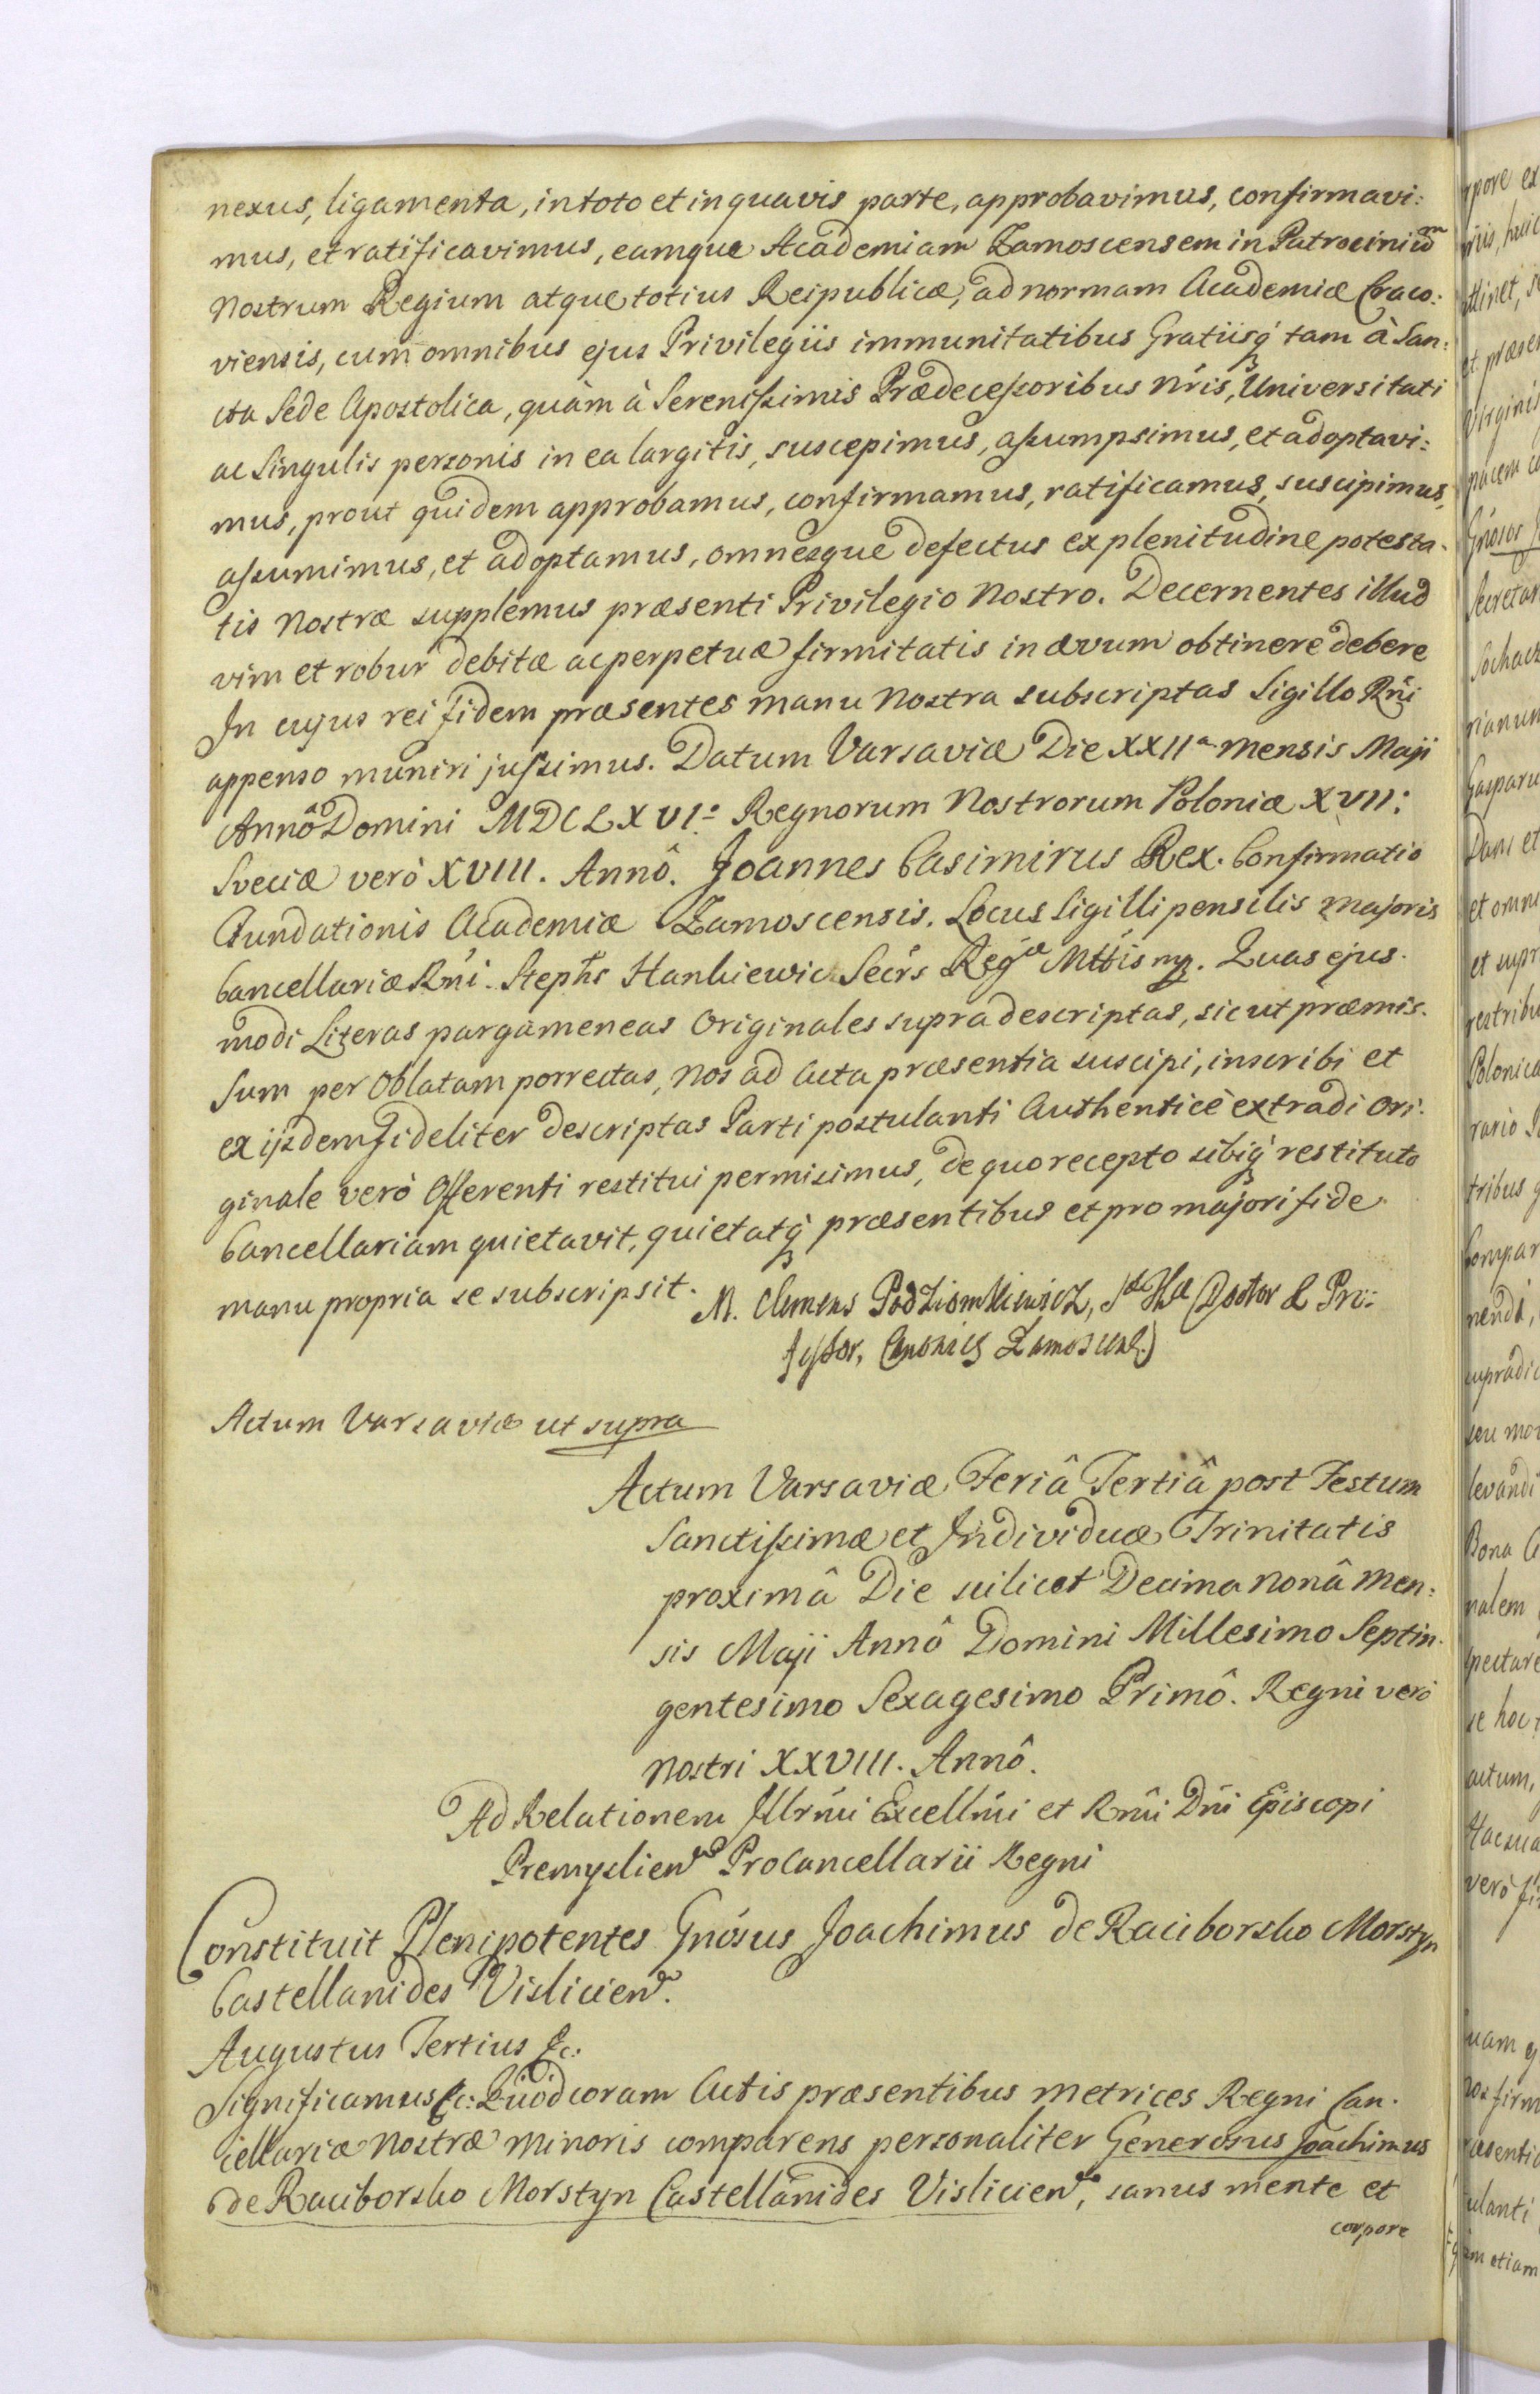 nexus, ligamenta, in toto et in quavis parte, approbavimus, confirmavi:
mus, et ratificavimus, eamque Academiam Zamoscensem in Patrociniũm
Nostrum Regium atque totius Reipublicæ, ad normam Academiæ Craco:
viensis, cum omnibus ejus Privilegiis immunitatibus Gratiisq́ tam à San:
cta Sede Apostolica, quàm à Serenissimis Prædecessoribus Nŕis, Universitati
ac Singulis personis in ea largitis, suscepimus, assumpsimus, et adoptavi:
mus, prout quidem approbamus, confirmamus, ratificamus, suscipimus,
assumimus, et adoptamus, omnesque defectus ex plenitudine potesta.
tis Nostræ supplemus præsenti Privilegio Nostro. Decernentes illud
vim et robur debitæ ac perpetuæ firmitatis in ævum obtinere debere
In cujus rei fidem præsentes manu Nostra subscriptas Sigillo Rñi
appenso muniri jussimus. Datum Varsaviæ Die XXIIa mensis Maji
Annô Domini MDCLXVIo Regnorum Nostrorum Poloniæ XVII:
Sveciæ verò XVIII. Annô. Joannes Casimirus Rex. Confirmatio
Fundationis Academiæ Zamoscensis. Locus Sigilli pensilis majoris
Cancellariæ Rńi. Stephs Hankiewic Secŕs Regiæ Mttis mp. Quas ejus.
modi Literas pargameneas Originales supra descriptas, sicut præmis.
sum per Oblatam porrectas, Nos ad Acta præsentia suscipi, inscribi et
ex ijsdem fideliter descriptas Parti postulanti Authenticè extradi Ori.
ginale verò Offerenti restitui permisimus, de quo recepto sibiq́ restituto
Cancellariam quietavit, quietatq́ præsentibus et pro majori fide
manu propria se subscripsit. M. Clemens Podziomkiewicz, Stæ Thæ Doctor & Pro:
fessor, Canonicus Zamoscens.
Actum Varsaviæ ut supra
Actum Varsaviæ Feriâ Tertiâ post Festum
Sanctissimæ et Individuæ Trinitatis
proximâ Die scilicet Decima Nonâ Men:
sis Maji Annô Domini Millesimo Septin.
gentesimo Sexagesimo Primô. Regni verò
Nostri XXVIII. Annô.
Ad Relationem Illrḿi Excellḿi et Rmĩ Dńi Episcopi
Premyslien Procancellarii Regni
Constituit Plenipotentes Gnósus Joachimus de Raciborsko Morstyn
Castellanides Vislicien.
Augustus Tertius &c:
Significamus &c: Quod coram Actis præsentibus Metrices Regni Can.
cellariæ Nostræ Minoris comparens personaliter Generosus Joachimus
de Raciborsko Morstyn Castellanides Vislicien, sanus mente et
corpore